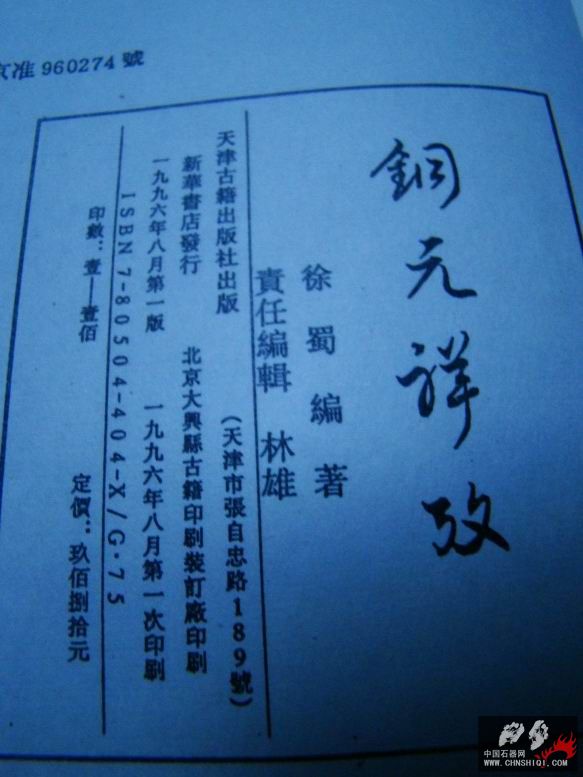 京准 960274 號
銅元詳攷
徐蜀編著
責任編輯 林雄
天津古籍出版社出版 (天津市張自忠路189號)
新華書店發行 北京大興縣古籍印刷裝訂廠印刷
一九九六年八月第一版 一九九六年八月第一次印刷
ISBN 7-80504-404-X/G·75
印數：壹——壹佰 定價：玖佰捌拾元
中国石器网
WWW.CHNSHIQI.COM